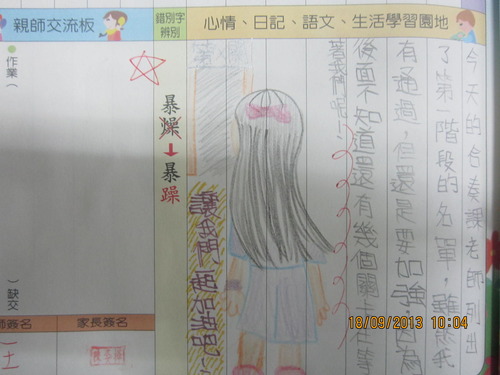 親師交流板
錯別字辨別
心情、日記、語文、生活學習園地
今天的合奏課老師列出
了第一階段的名單，雖然我
有通過，但還是要加強，因為
後面不知道還有幾個關卡在等
著我們呢！
暴燥
暴躁
讓我們再加油吧！
作業（
）缺交
師簽名
家長簽名
18/09/2013 10:04